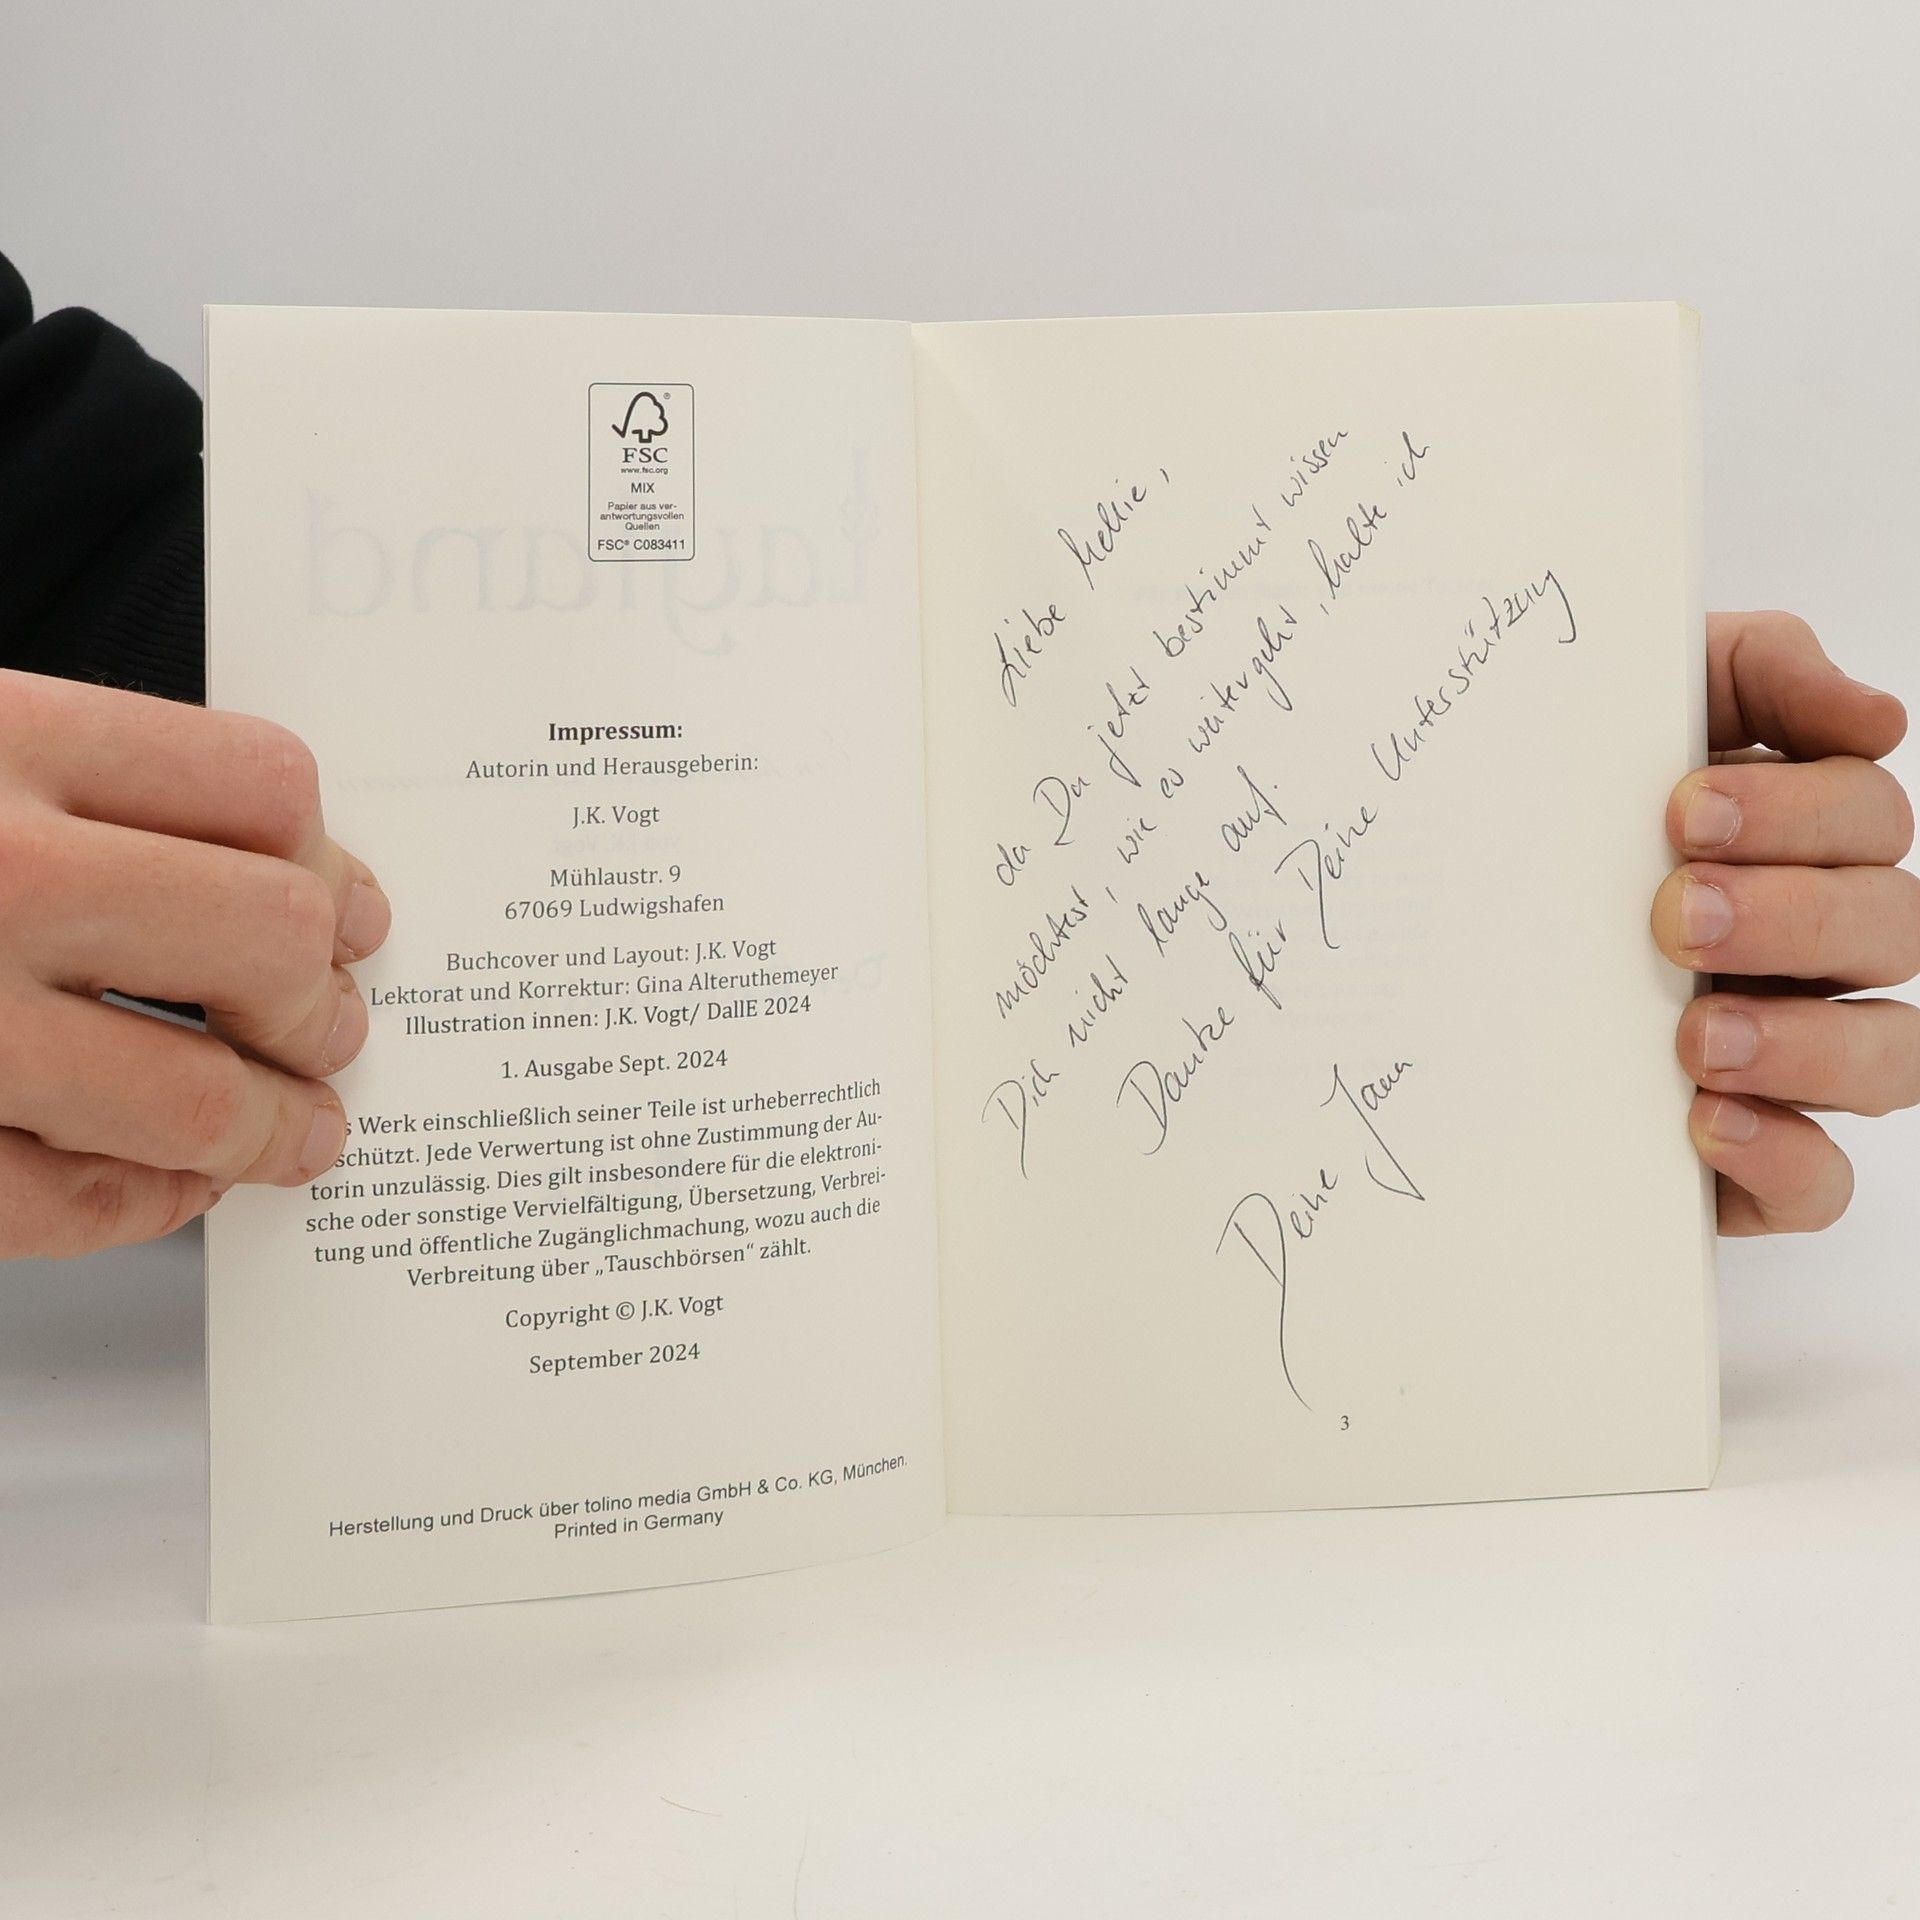 FSC
www.fsc.org
MIX
Papier aus ver-
antwortungsvollen
Quellen
FSC® C083411
Impressum:
Autorin und Herausgeberin:
J.K. Vogt
Mühlaustr. 9
67069 Ludwigshafen
Buchcover und Layout: J.K. Vogt
Lektorat und Korrektur: Gina Alteruthemeyer
Illustration innen: J.K. Vogt/ DallE 2024
1. Ausgabe Sept. 2024
s Werk einschließlich seiner Teile ist urheberrechtlich
schützt. Jede Verwertung ist ohne Zustimmung der Au-
torin unzulässig. Dies gilt insbesondere für die elektroni-
sche oder sonstige Vervielfältigung, Übersetzung, Verbrei-
tung und öffentliche Zugänglichmachung, wozu auch die
Verbreitung über „Tauschbörsen“ zählt.
Copyright © J.K. Vogt
September 2024
Herstellung und Druck über tolino media GmbH & Co. KG, München.
Printed in Germany
Liebe
da Du jetzt bestimmt wissen
möchtest, wie es weitergeht, halte ich
Dich nicht lange auf.
Danke für Deine Unterstützung
Deine Jana
3